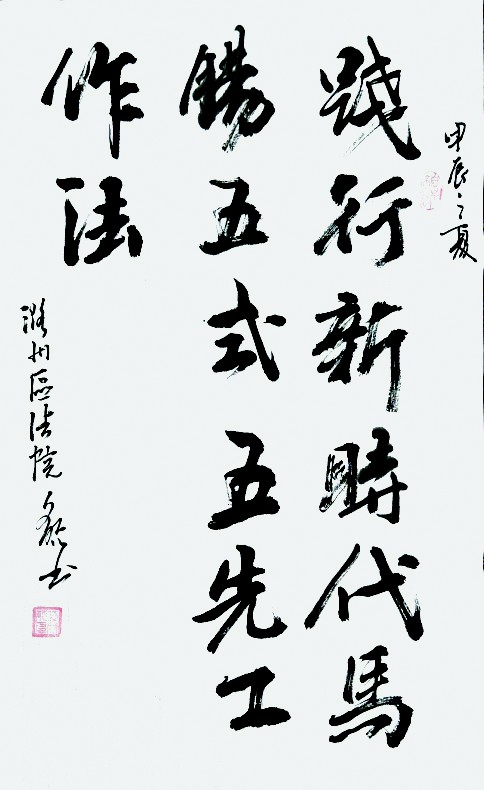 甲辰之夏
践行新時代馬
錫五式五先工
作法
潞州區法院 書